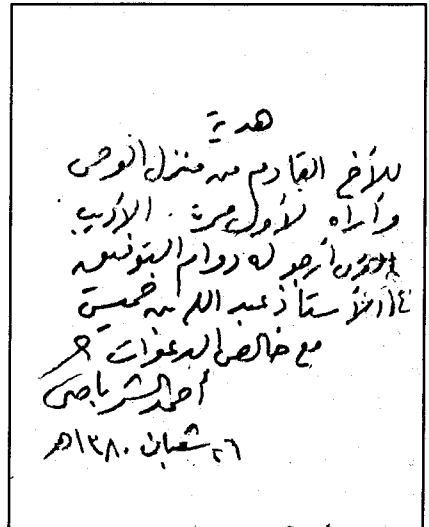 هدية
للأخ القادم من منزل الوحى
وأراه لأول مرة . الأديب
أرجو له دوام التوفيق
الأستاذ عبد الله بن خميس
مع خالص الدعوات
أحمد الشرباصى
٢٦ شعبان ١٣٨٠هـ